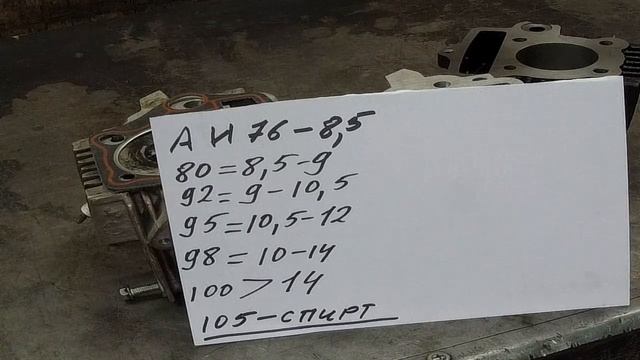 АИ 76-8,5
80=8,5-9
92=9-10,5
95=10,5-12
98=10-14
100>14
105-СПИРТ